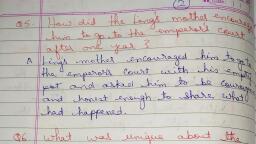 2
Q5. How did the Ling's mother encourag
him to go to the emperor's court
after one year?
A Ling's mother encouraged him to go to
the emperor's court with his empty
pot and asked him to be courag
and honest enough to share what
had happened.
Q6 What was unique about the